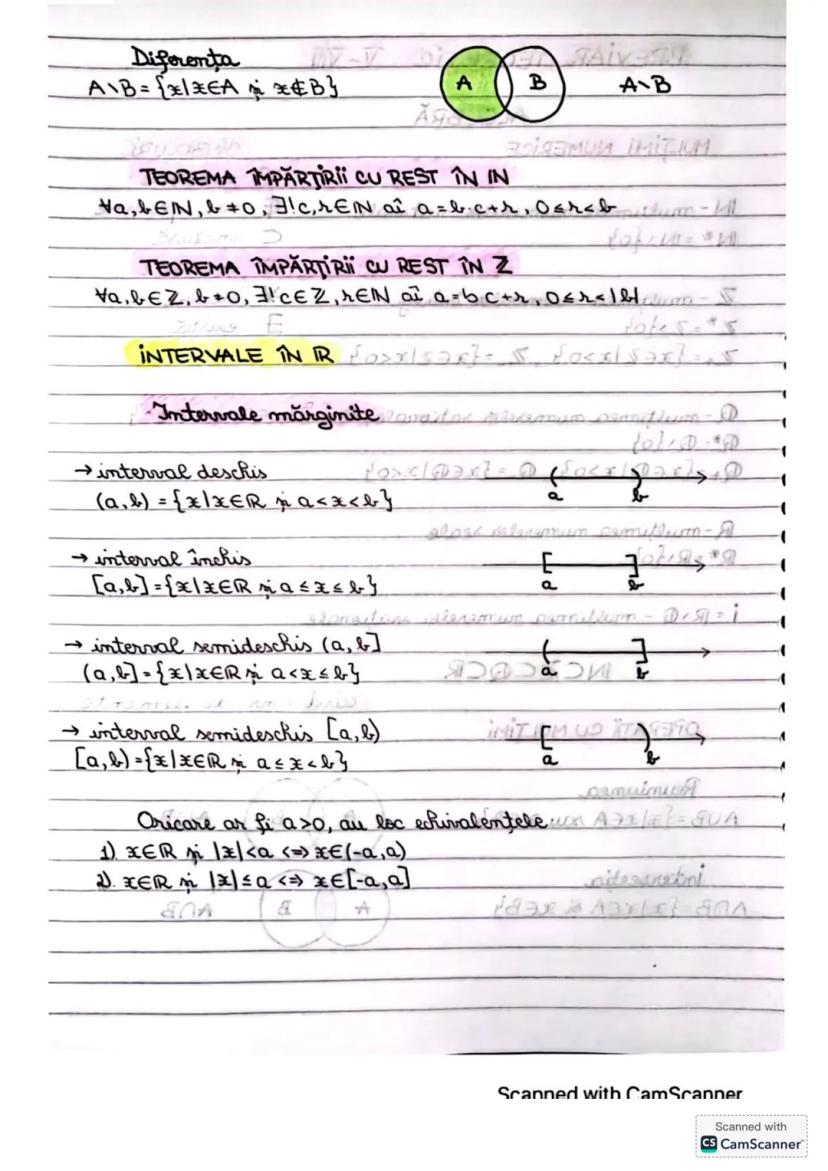 Diferența
A\B = {x|x∈A și x∉B}
A B A\B
TEOREMA ÎMPĂRȚIRII CU REST ÎN ℕ
∀a,b∈ℕ, b≠0, ∃!c,r∈ℕ aî a=b·c+r, 0≤r<b
TEOREMA ÎMPĂRȚIRII CU REST ÎN ℤ
∀a,b∈ℤ, b≠0, ∃!c∈ℤ, r∈ℕ aî a=b·c+r, 0≤r<|b|
INTERVALE ÎN ℝ
Intervale mărginite
→ interval deschis
(a,b) = {x|x∈ℝ și a<x<b}
( )
a b
→ interval închis
[a,b] = {x|x∈ℝ și a≤x≤b}
[ ]
a b
→ interval semideschis (a,b]
(a,b] = {x|x∈ℝ și a<x≤b}
( ]
a b
→ interval semideschis [a,b)
[a,b) = {x|x∈ℝ și a≤x<b}
[ )
a b
Oricare ar fi a>0, au loc echivalențele
1). x∈ℝ și |x|<a <=> x∈(-a,a)
2). x∈ℝ și |x|≤a <=> x∈[-a,a]
Scanned with CamScanner
Scanned with
CS CamScanner